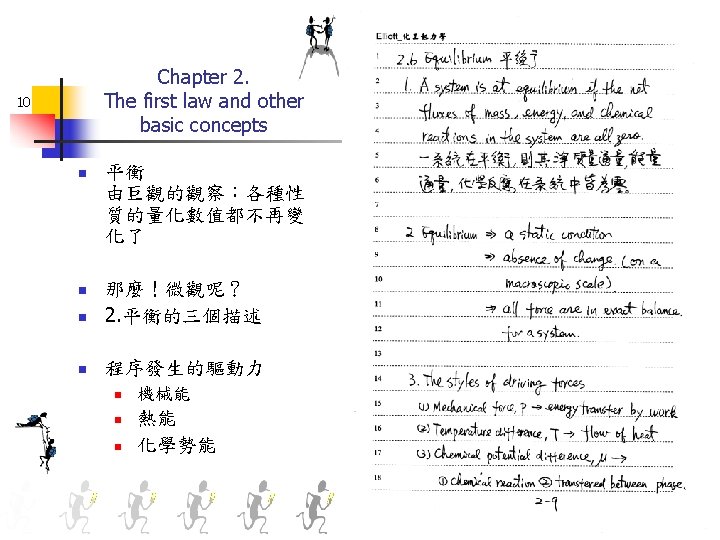 10
Chapter 2.
The first law and other
basic concepts
平衡
由巨觀的觀察：各種性
質的量化數值都不再變
化了
那麼！微觀呢？
2.平衡的三個描述
程序發生的驅動力
機械能
熱能
化學勢能
Elliott_化工熱力學
1 2.6 Equilibrium 平衡
2 1. A system is at equilibrium if the net
3 fluxes of mass, energy, and chemical
4 reactions in the system are all zero.
5 一系統在平衡,則其淨質量通量,能量
6 通量,化學反應,在系統中皆為零.
7
8 2 Equilibrium ⇒ a static condition
9 ⇒ absence of change (on a
10 macroscopic scale)
11 ⇒ all force are in exact balance
12 for a system.
13
14 3. The styles of driving forces
15 (1) Mechanical force, P → energy transfer by work
16 (2) Temperature difference, T → flow of heat
17 (3) Chemical potential difference, μ →
18 ① Chemical reaction ② transfered between phase.
2-9